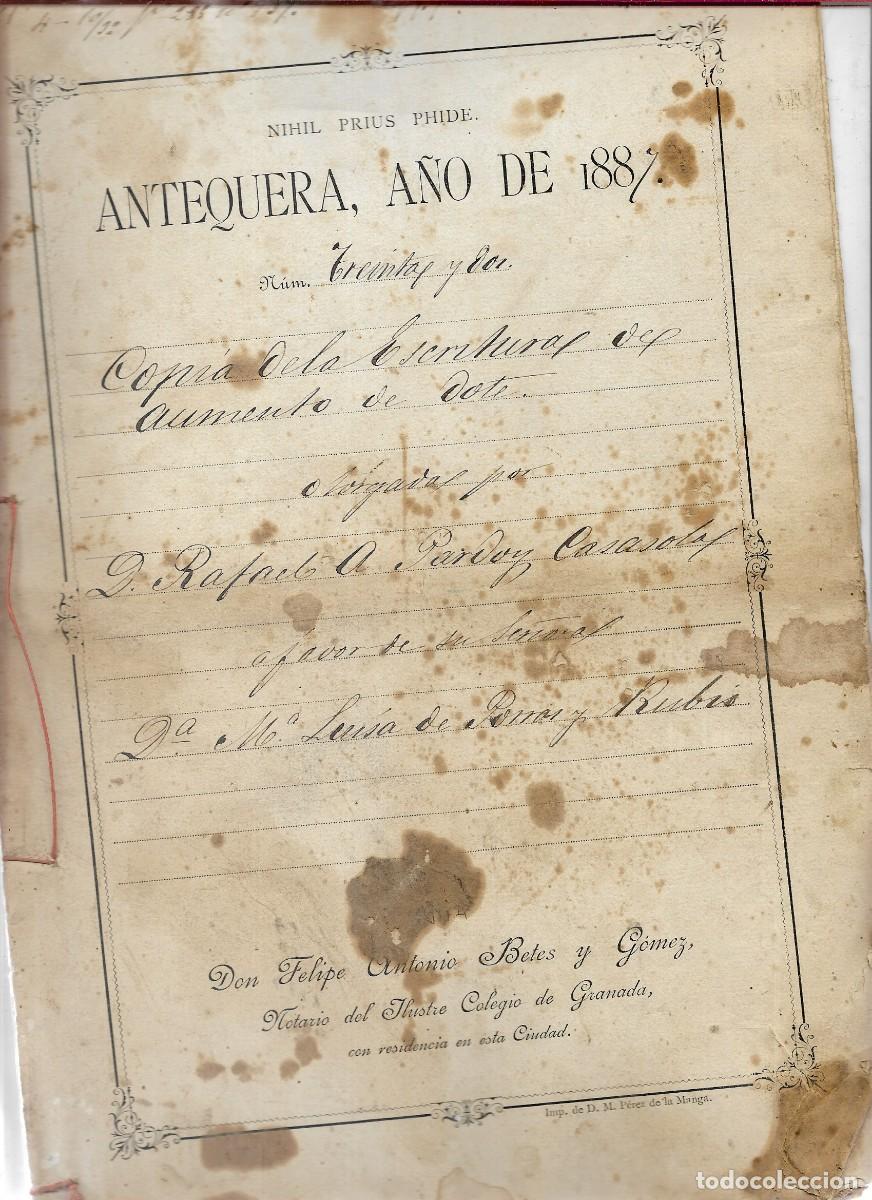 NIHIL PRIUS PHIDE.
ANTEQUERA, AÑO DE 1887.
Núm. Treinta y dos.
Copia de la Escritura de
aumento de dote.
otorgada por
D. Rafael A Pardo y Casasola
a favor de su Señora
Dª Mª Luisa de Porras y Rubio
Don Felipe Antonio Betes y Gómez,
Notario del Ilustre Colegio de Granada,
con residencia en esta Ciudad.
Imp. de D. M. Pérez de la Manga.
todocoleccion